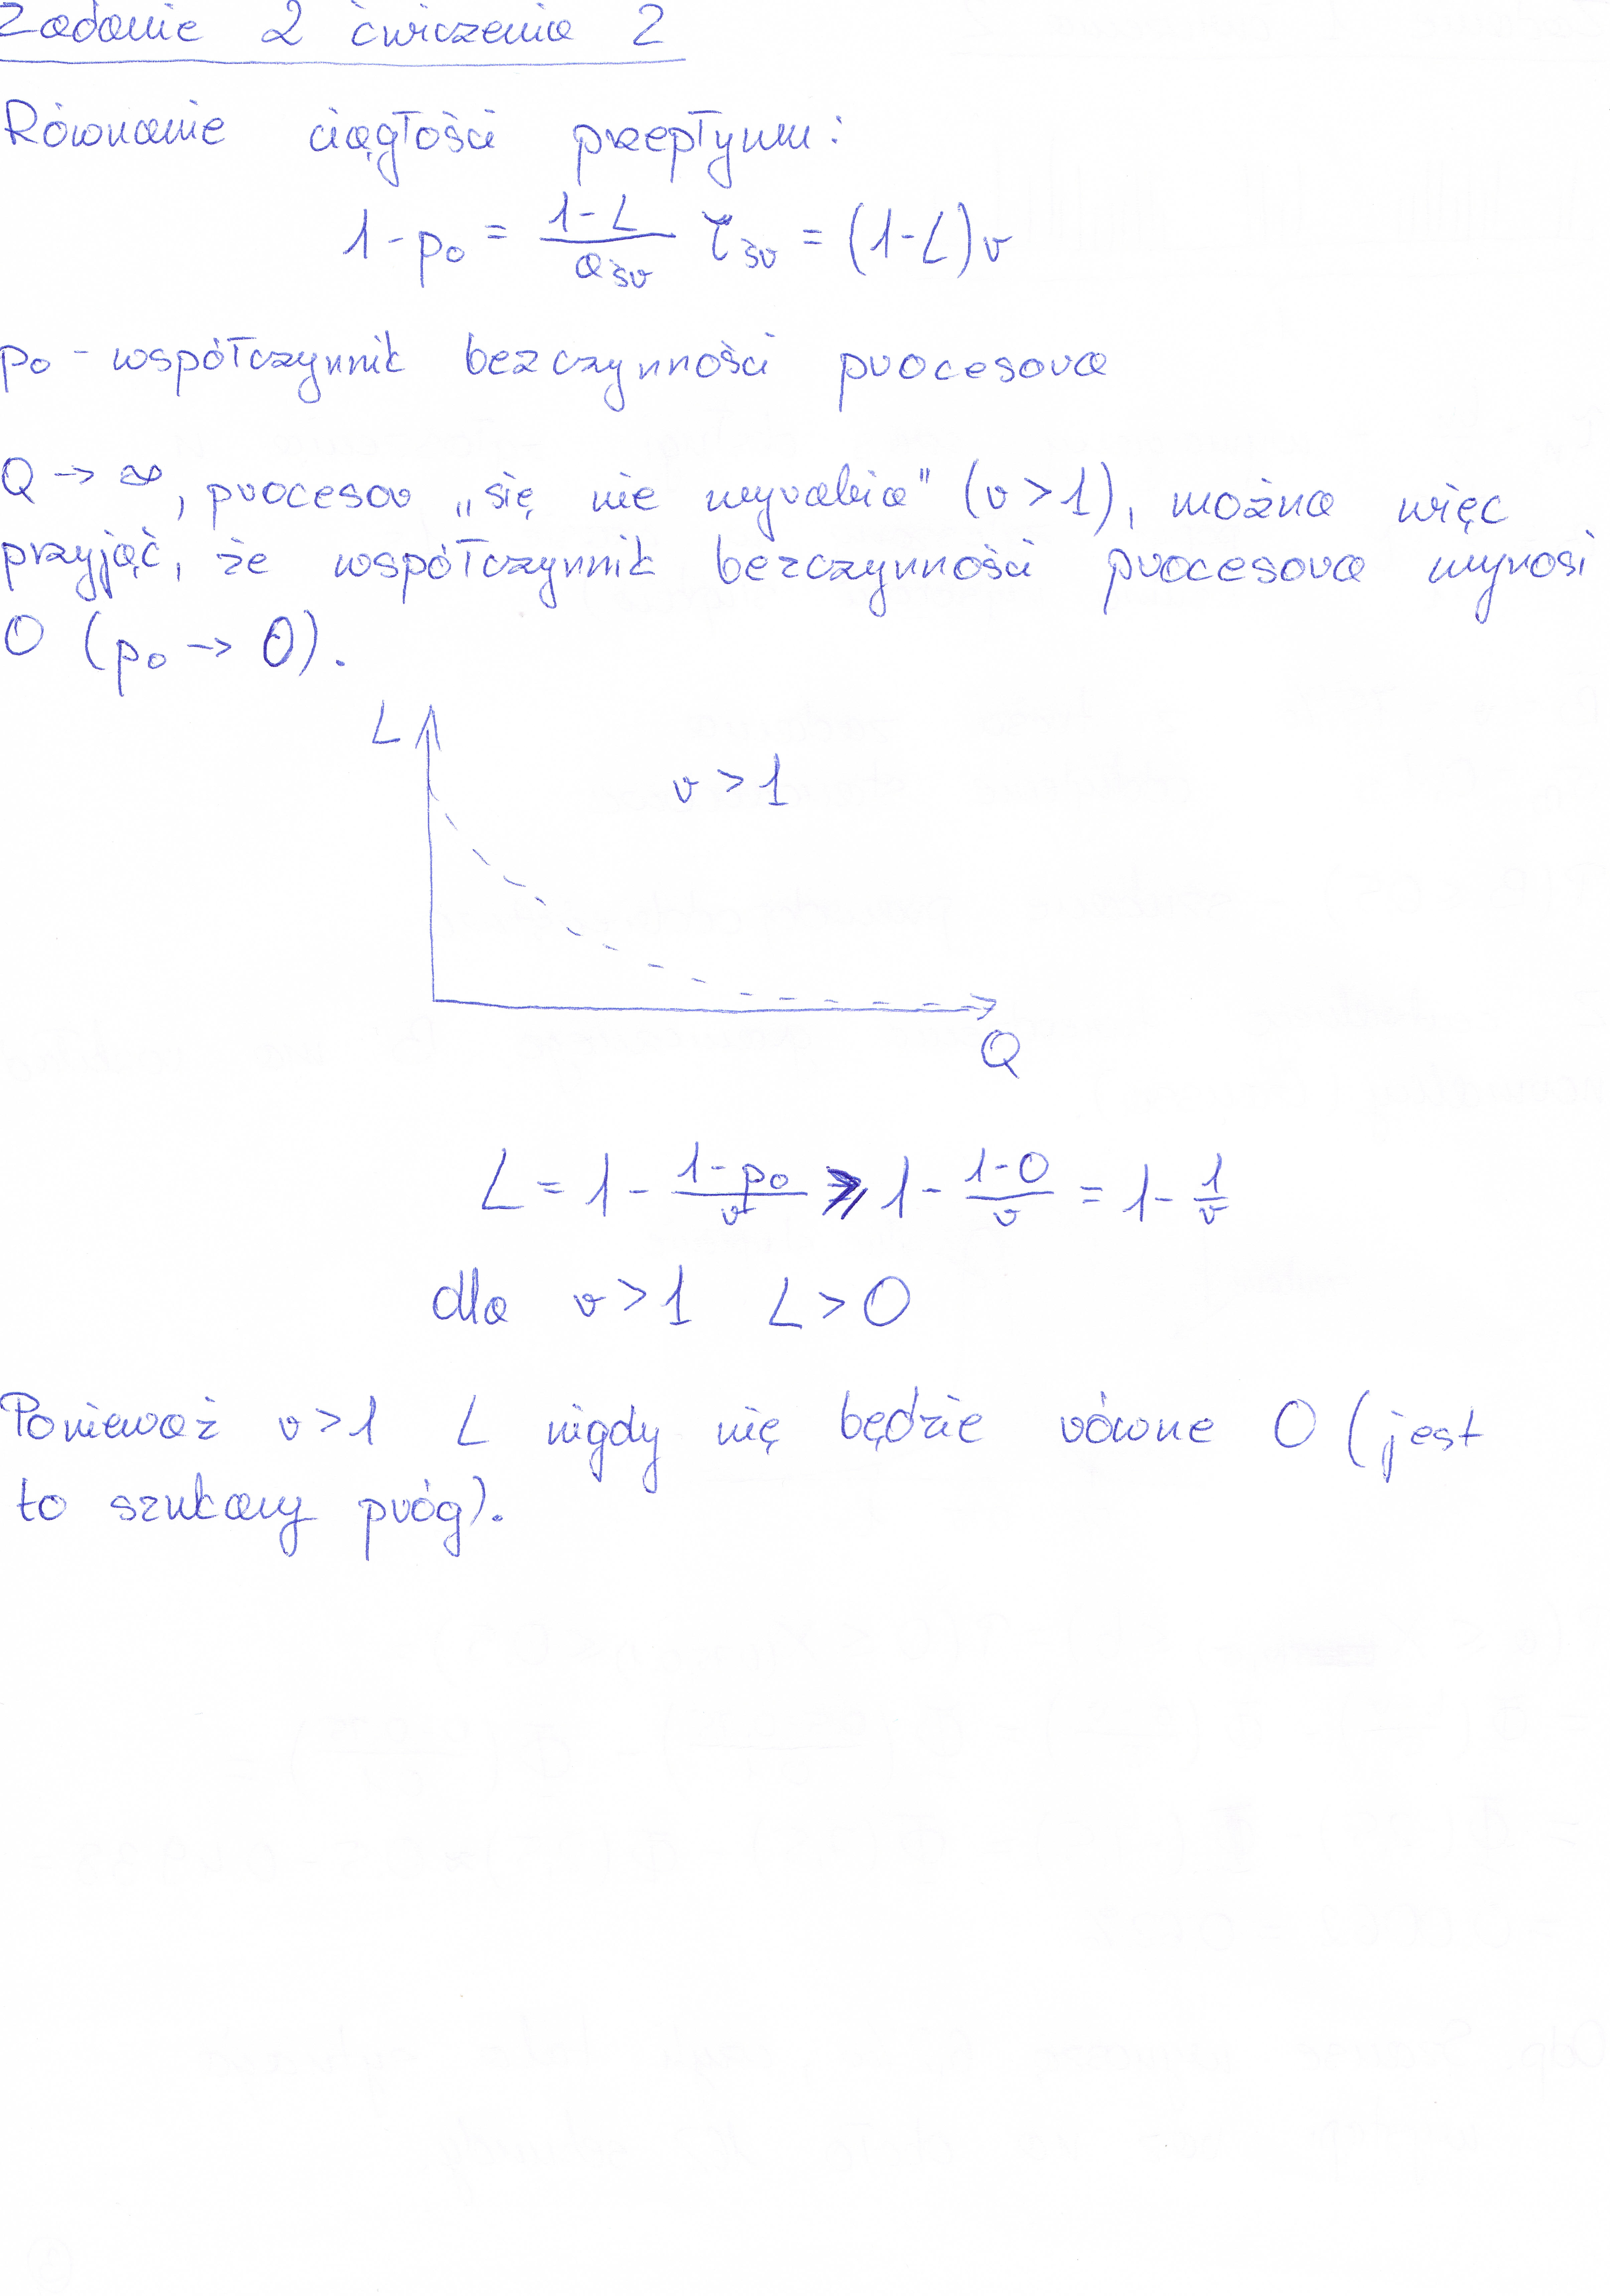 Zadanie 2 ćwiczenia 2
Równanie ciągłości przepływu:
1-p₀ = \frac{1-L}{a_{śr}} τ_{śr} = (1-L)r
p₀ - współczynnik bezczynności procesora
Q → ∞, procesor „się nie wyrabia" (r > 1), można więc
przyjąć, że współczynnik bezczynności procesora wynosi
0 (p₀ → 0).
L
r > 1
Q
L = 1 - \frac{1-p₀}{r} ≥ 1 - \frac{1-0}{r} = 1 - \frac{1}{r}
dla r > 1 L > 0
Ponieważ r > 1 L nigdy nię będzie równe 0 (jest
to szukany próg).